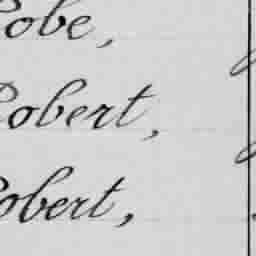 Robe,
Robert,
Robert,